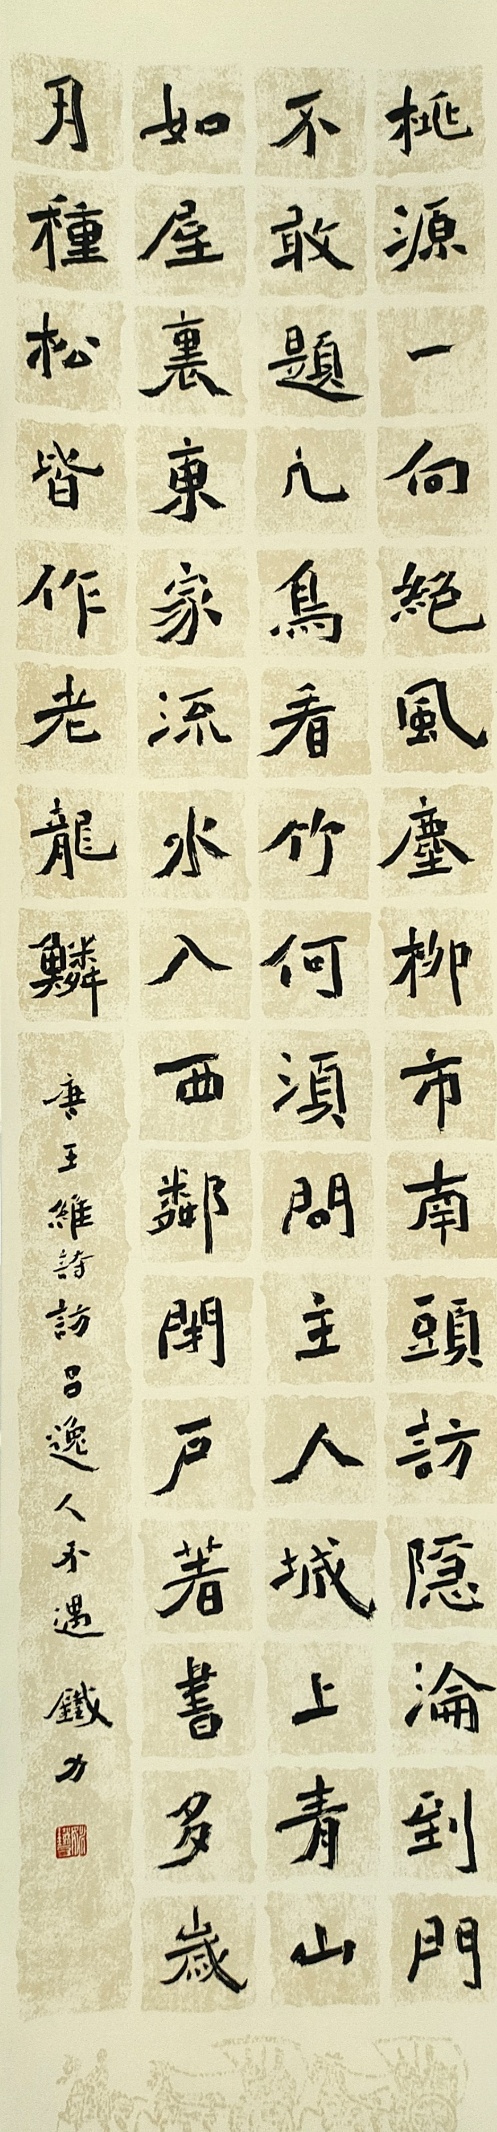 桃源一向絕風塵柳市南頭訪隱淪到門
不敢題凢鳥看竹何須問主人城上青山
如屋裏東家流水入西鄰閉戶著書多歲
月種松皆作老龍鱗
唐王維詩訪呂逸人不遇 鐵力